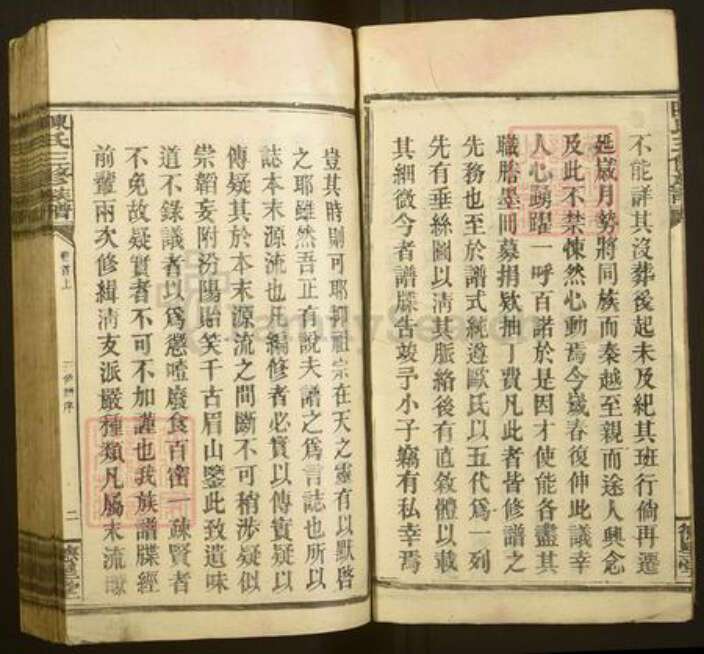 不能詳其沒葬後起未及紀其班行倘再遷
延歲月勢將同族而秦越至親而途人興念
及此不禁悚然心動焉今歲春復伸此議幸
人心踴躍一呼百諾於是因才使能各盡其
職謄墨問募捐欵抽丁費凡此者皆修譜之
先務也至於譜式統遵歐氏以五代爲一列
先有垂絲圖以清其脈絡後有直敘體以載
其細微今者譜牒告竣予小子竊有私幸焉
豈其時則可耶抑祖宗在天之靈有以默啓
之耶雖然吾正有說夫譜之爲言誌也所以
誌本末源流也凡編修者必實以傳實疑以
傳疑其於本末源流之間斷不可稍涉疑似
崇韜妄附汾陽貽笑千古眉山鑒此致遺味
道不錄議者以爲懲噎廢食百密一疎賢者
不免故疑實者不可不加謹也我族譜牒經
前輩兩次修緝清支派嚴種類凡屬末流
陳氏三修族譜
卷首上
三修譜序
二